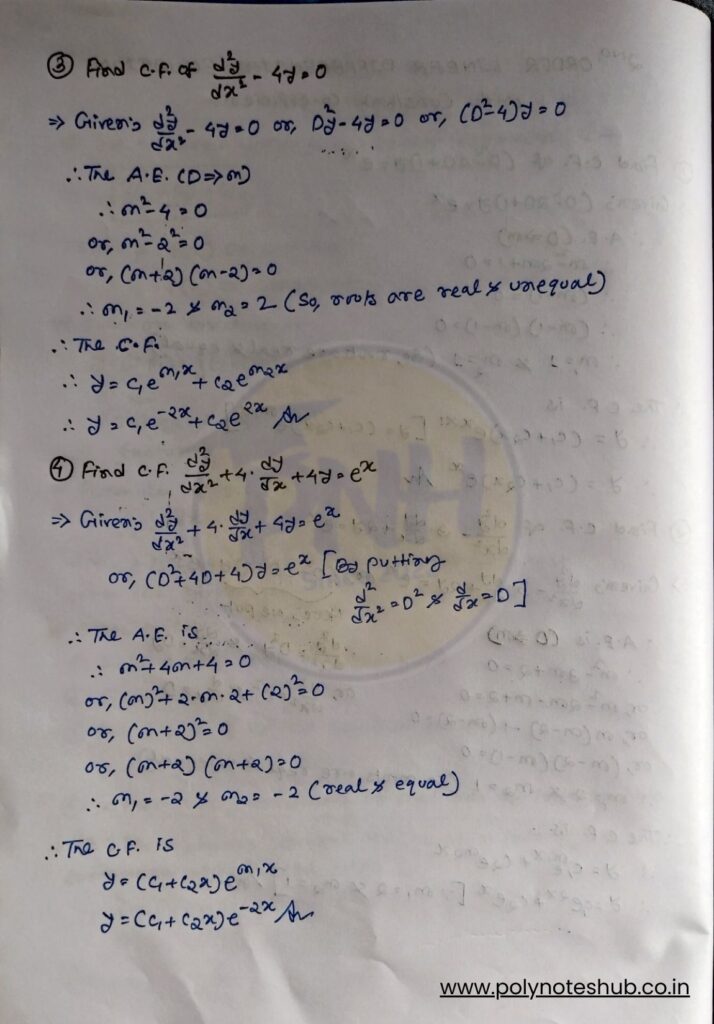 ③ Find C.F. of d²y/dx² - 4y = 0
⇒ Given:- d²y/dx² - 4y = 0 or, D²y - 4y = 0 or, (D² - 4)y = 0
∴ The A.E. (D ⇒ m)
∴ m² - 4 = 0
or, m² - 2² = 0
or, (m+2) (m-2) = 0
∴ m₁ = -2 & m₂ = 2 (So, roots are real & unequal)
∴ The C.F.
∴ y = c₁e^m₁x + c₂e^m₂x
∴ y = c₁e^-2x + c₂e^2x Ans
④ Find C.F. d²y/dx² + 4. dy/dx + 4y = e^x
⇒ Given:- d²y/dx² + 4. dy/dx + 4y = e^x
or, (D² + 4D + 4)y = e^x [By putting
d²/dx² = D² & d/dx = D]
∴ The A.E. is
∴ m² + 4m + 4 = 0
or, (m)² + 2.m.2 + (2)² = 0
or, (m+2)² = 0
or, (m+2) (m+2) = 0
∴ m₁ = -2 & m₂ = -2 (real & equal)
∴ The C.F. is
y = (c₁ + c₂x)e^m₁x
y = (c₁ + c₂x)e^-2x Ans
PNH
www.polynoteshub.co.in